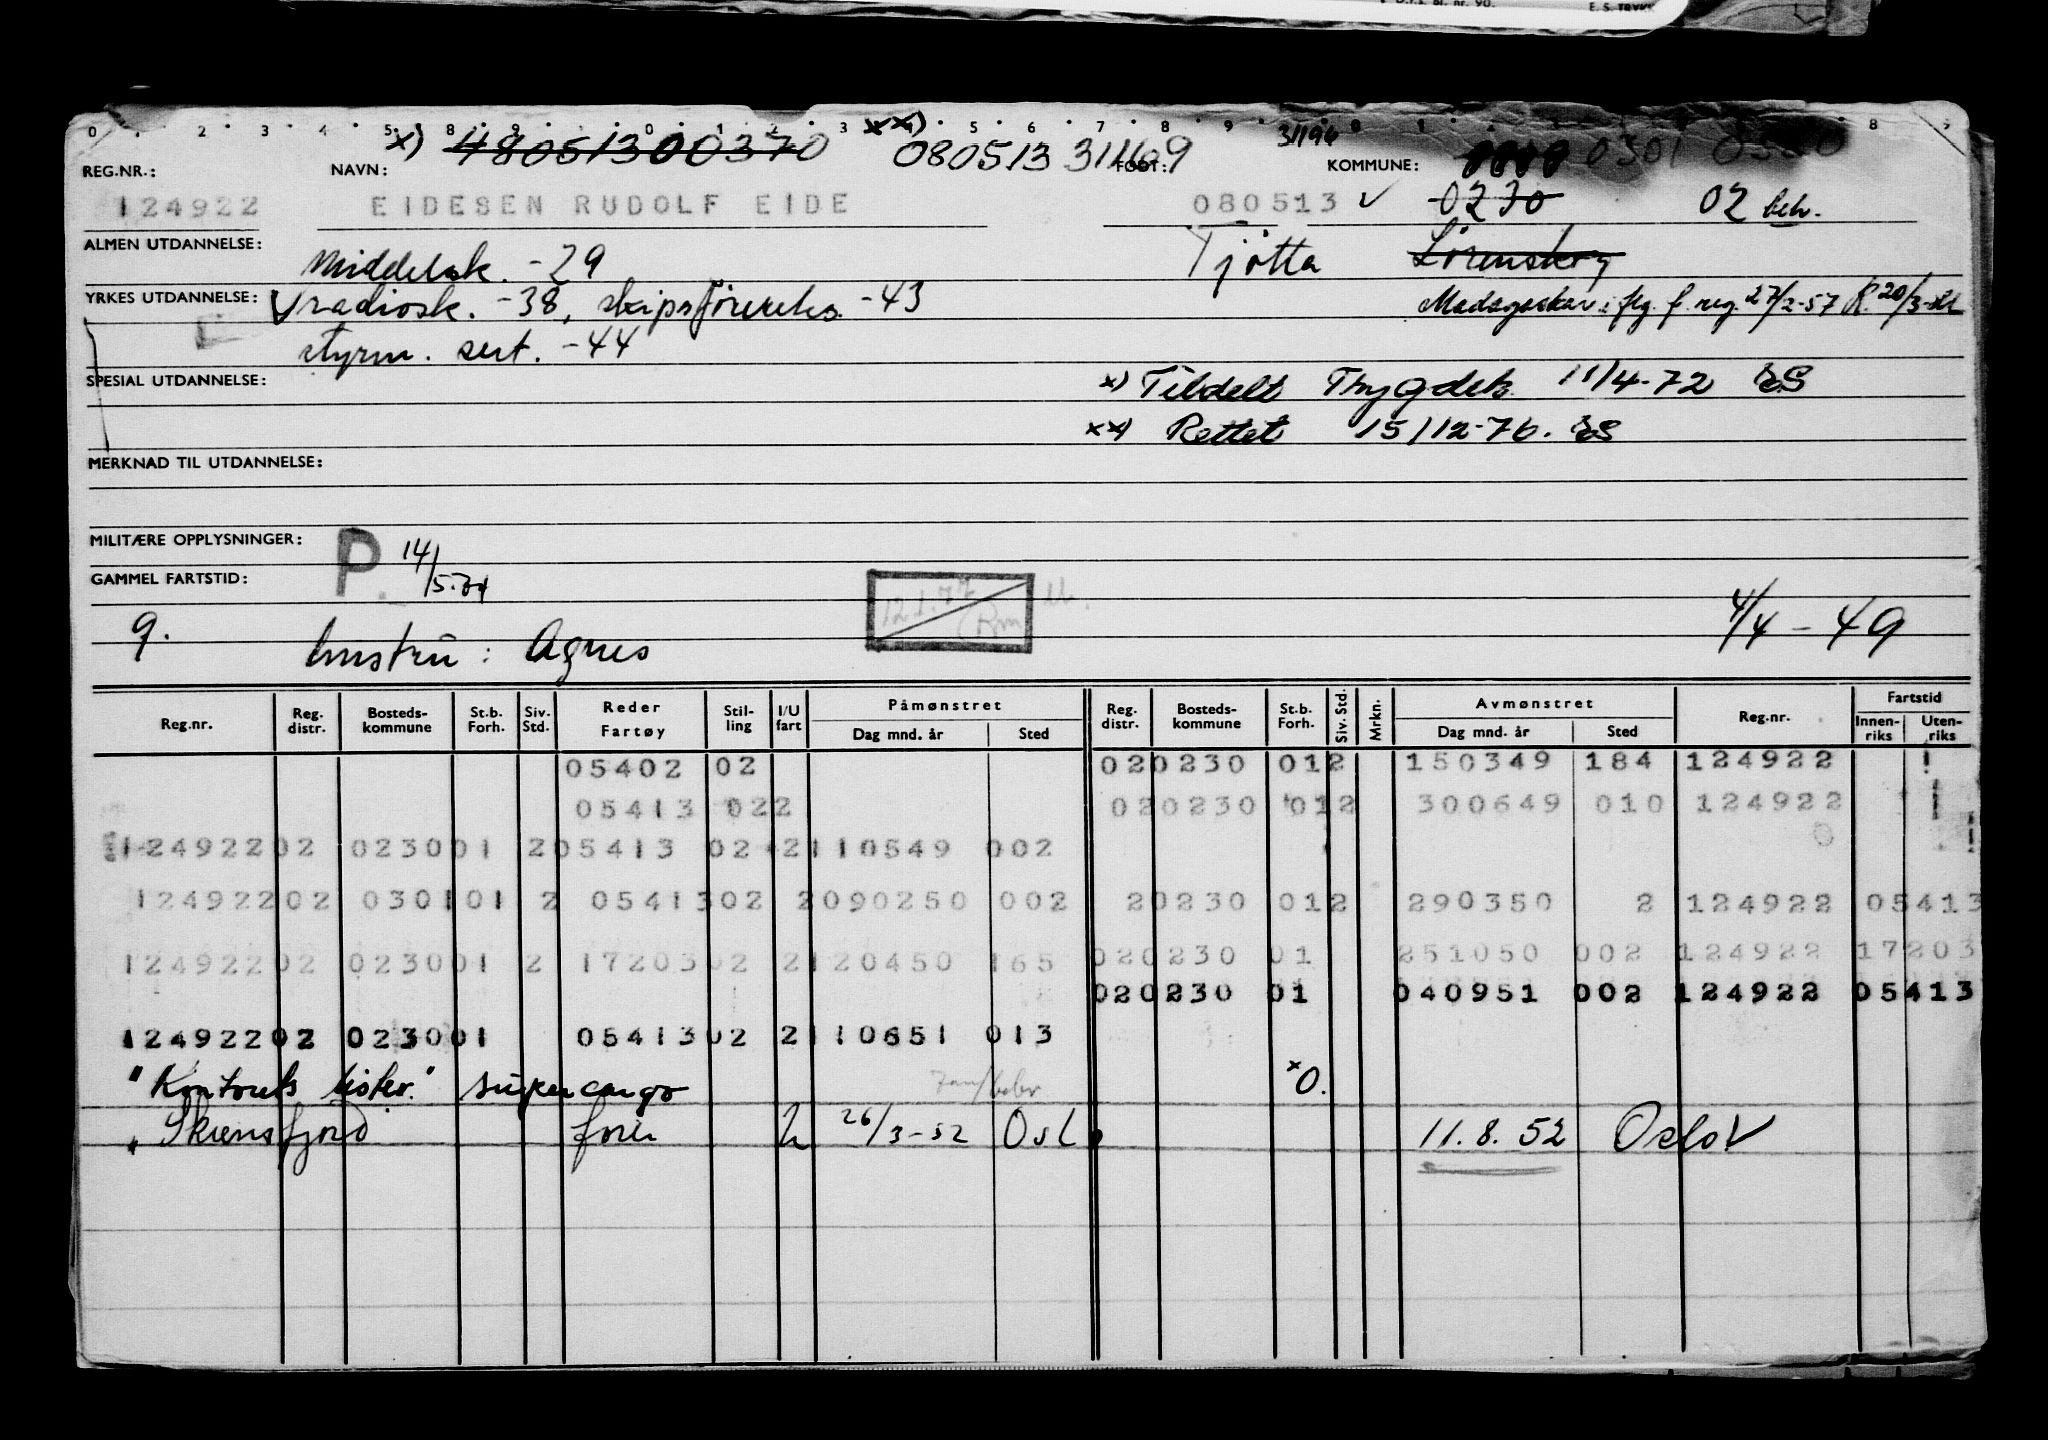 E. S. TRYKK
0 2 3 4 5 8 9 0 1 2 3 5 6 7 8 9 0 1 8 9
x) 48051300370 xx) 080513 31169 0301
REG.NR.: NAVN: FØDT: KOMMUNE:
124922 EIDESEN RUDOLF EIDE 080513 ✓ 0230 02 beh.
ALMEN UTDANNELSE: Middelsk. -29 Tjøtta Lørenskog
YRKES UTDANNELSE: radiosk. -38, skipsførereks. -43 Madagaskar: flg. f. reg. 27/2-57
styrm. sert. -44
SPESIAL UTDANNELSE: x) Tildelt Trygdek. 11/4-72 ES
xx) Rettet 15/12-76. ES
MERKNAD TIL UTDANNELSE:
MILITÆRE OPPLYSNINGER: P. 14/5.74
GAMMEL FARTSTID: 12.1.77
9. hustru: Agnes 4/4-49
Reg.nr. Reg. distr. Bosteds-kommune St.b. Forh. Siv. Std. Reder Fartøy Stil-ling I/U fart Påmønstret Dag mnd. år Sted Reg. distr. Bosteds-kommune St.b. Forh. Siv. Std. Mrkn. Avmønstret Dag mnd. år Sted Reg.nr. Fartstid Innen-riks Uten-riks
05402 02 020230 012 150349 184 124922
05413 022 020230 012 300649 010 124922
12492202 023001 205413 02 2110549 002
12492202 030101 2 0541302 2090250 002 20230 012 290350 2 124922 05413
12492202 023001 2 1720302 2120450 165 020230 01 251050 002 124922 17203
020230 01 040951 002 124922 05413
12492202 023001 0541302 2110651 013
"Kontorets lister." supercargo x0.
" Skiensfjord 26/3-52 Osl. 11.8.52 Oslo V